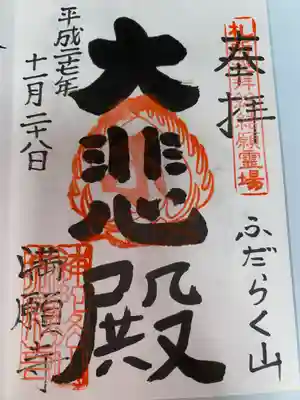 奉拝
ふだらく山
大悲殿
平成二十七年
十一月二十八日
満願寺